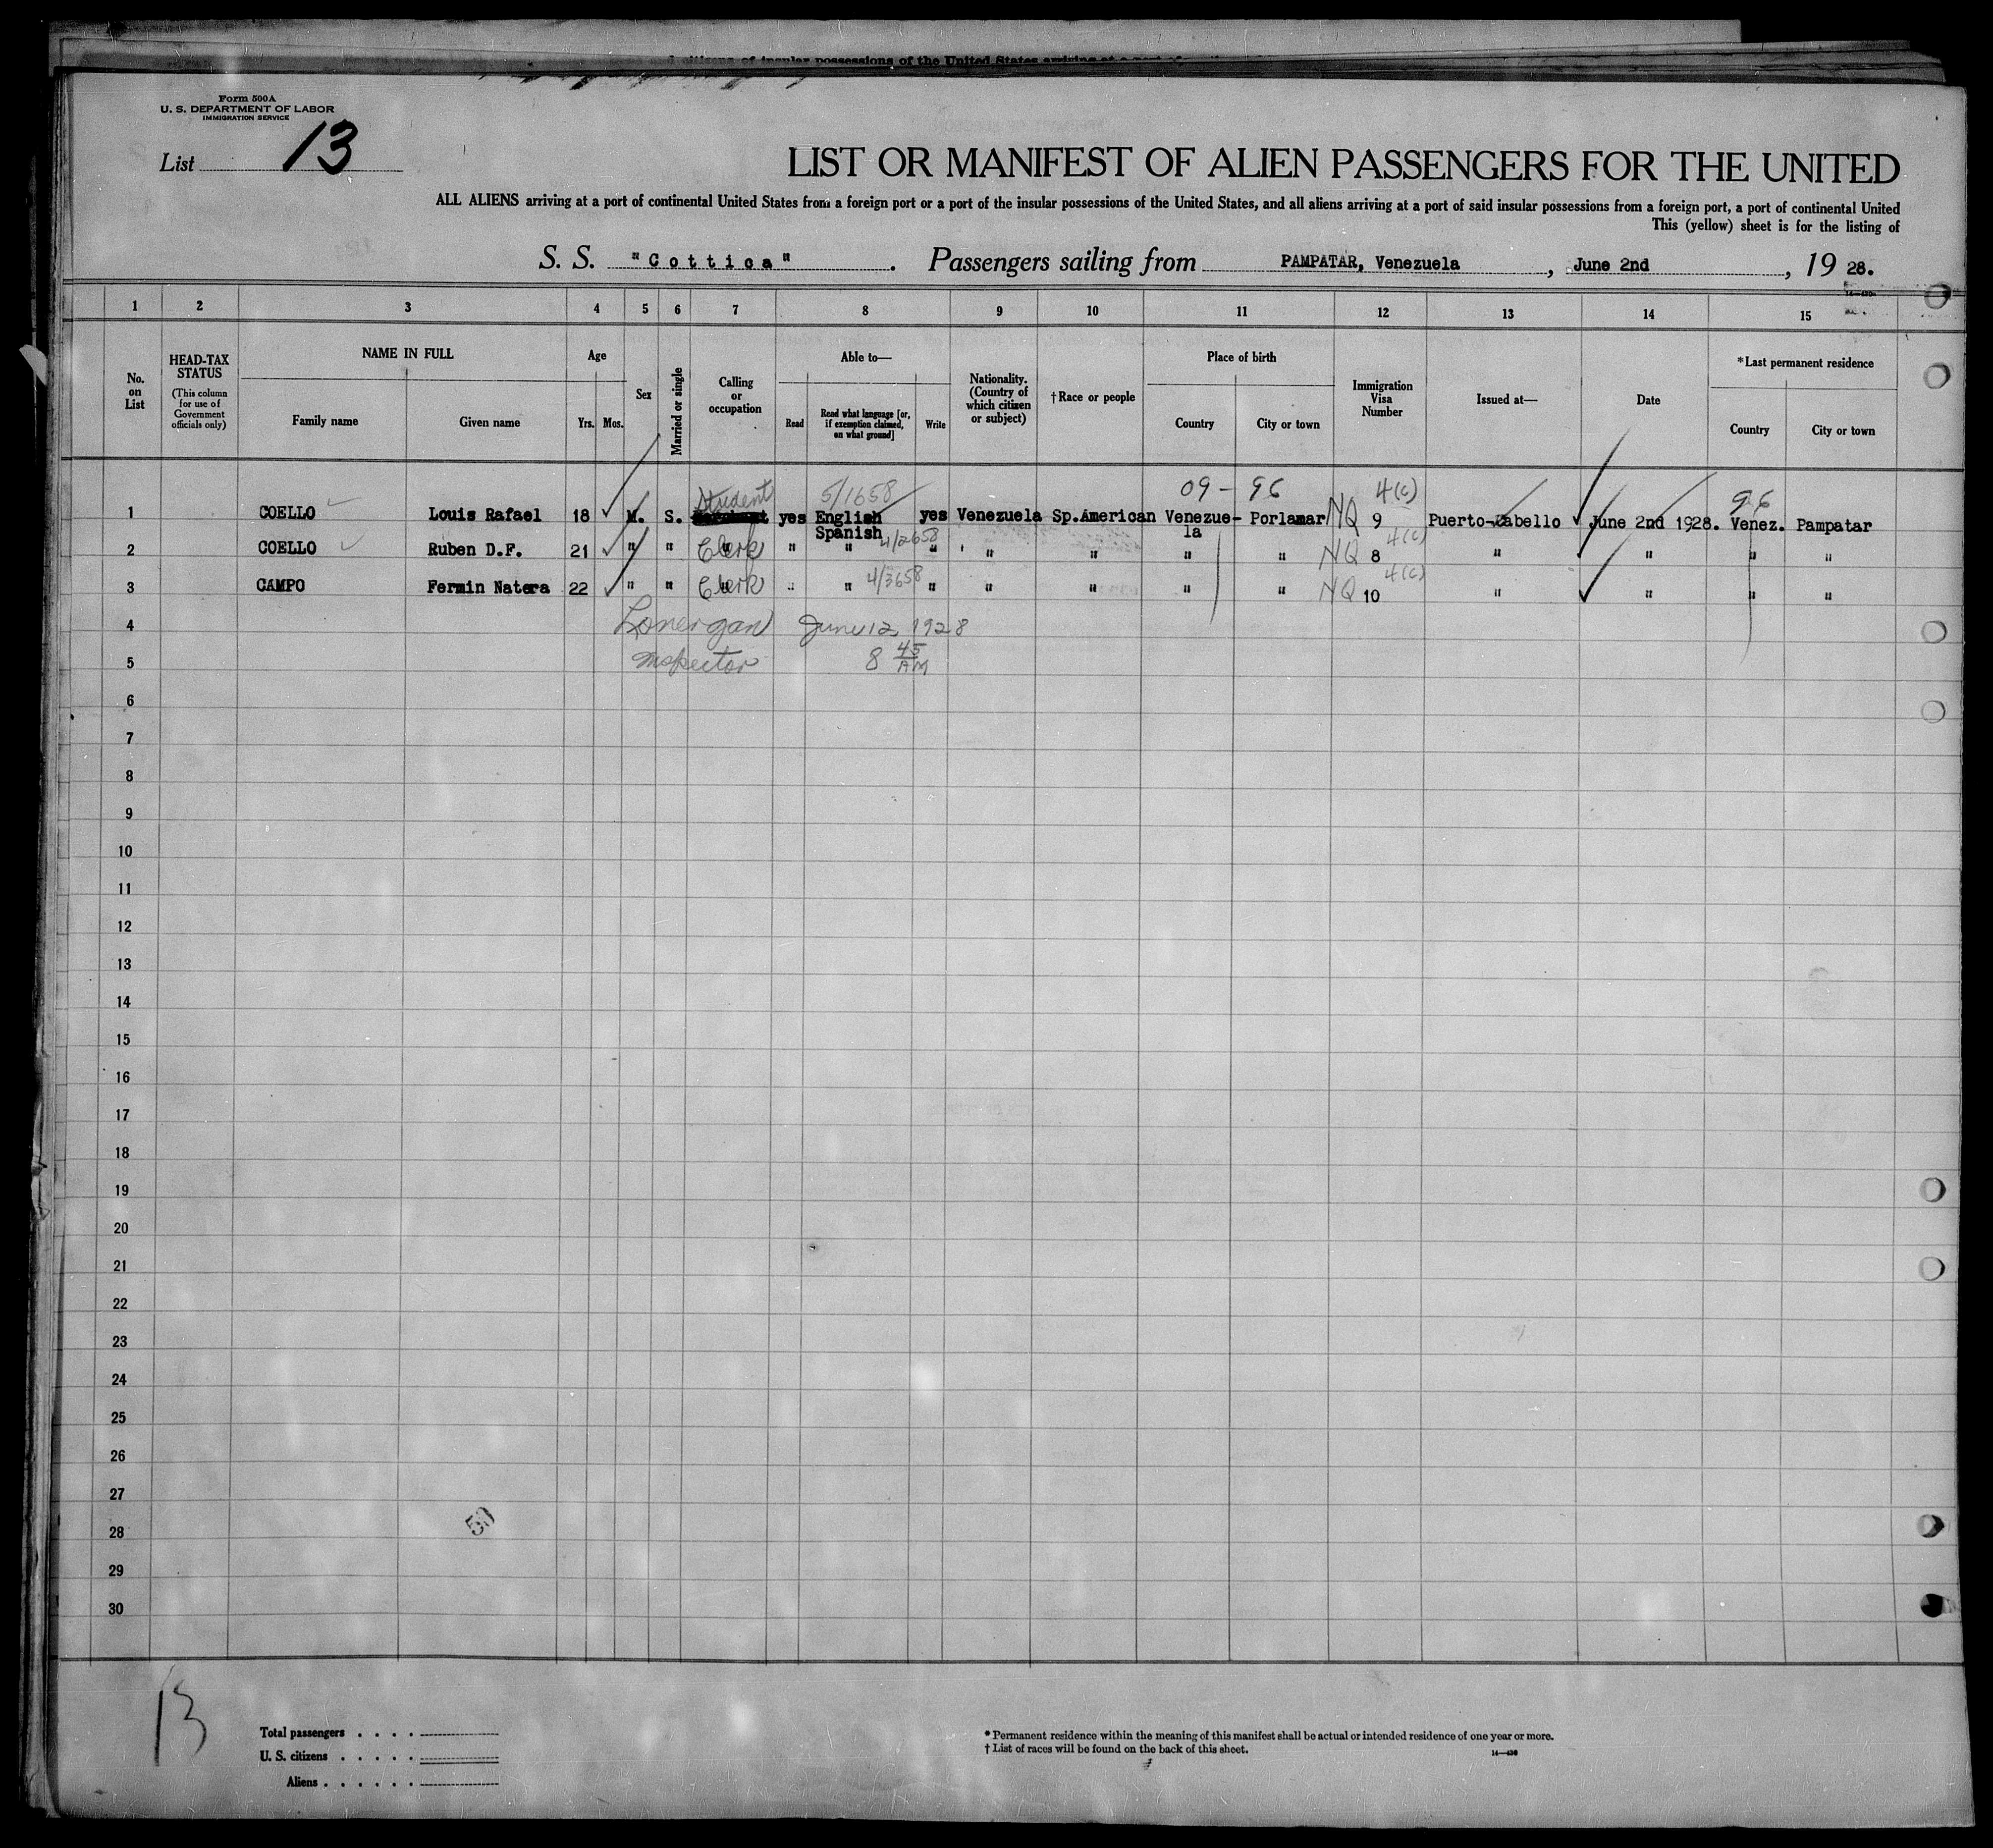 citizens of insular possessions of the United States arriving at a port of
Form 500A
U. S. DEPARTMENT OF LABOR
IMMIGRATION SERVICE
List 13
LIST OR MANIFEST OF ALIEN PASSENGERS FOR THE UNITED
ALL ALIENS arriving at a port of continental United States from a foreign port or a port of the insular possessions of the United States, and all aliens arriving at a port of said insular possessions from a foreign port, a port of continental United
This (yellow) sheet is for the listing of
S. S. "Cottica". Passengers sailing from PAMPATAR, Venezuela, June 2nd, 19 28.
1 2 3 4 5 6 7 8 9 10 11 12 13 14 15
No. on List
HEAD-TAX STATUS
(This column for use of Government officials only)
NAME IN FULL
Family name Given name
Age
Yrs. Mos.
Sex
Married or single
Calling or occupation
Able to—
Read Read what language [or, if exemption claimed, on what ground] Write
Nationality. (Country of which citizen or subject)
†Race or people
Place of birth
Country City or town
Immigration Visa Number
Issued at—
Date
*Last permanent residence
Country City or town
Student 5/1658 09 - 96 4(c) 96
1 COELLO Louis Rafael 18 M. S. yes English yes Venezuela Sp.American Venezue- Porlamar NQ 9 Puerto-Cabello June 2nd 1928. Venez. Pampatar
Spanish la
2 COELLO Ruben D.F. 21 " " Clerk " " 4/2658 " " " " " NQ 8 4(c) " " " "
3 CAMPO Fermin Natera 22 " " Clerk " " 4/3658 " " " " " NQ 10 4(c) " " " "
4 Lonergan June 12 1928
5 Inspector 8 45 AM
6
7
8
9
10
11
12
13
14
15
16
17
18
19
20
21
22
23
24
25
26
27
28
29
30
50
13
Total passengers . . . .
U. S. citizens . . . . .
Aliens . . . . . .
* Permanent residence within the meaning of this manifest shall be actual or intended residence of one year or more.
† List of races will be found on the back of this sheet.
14—430